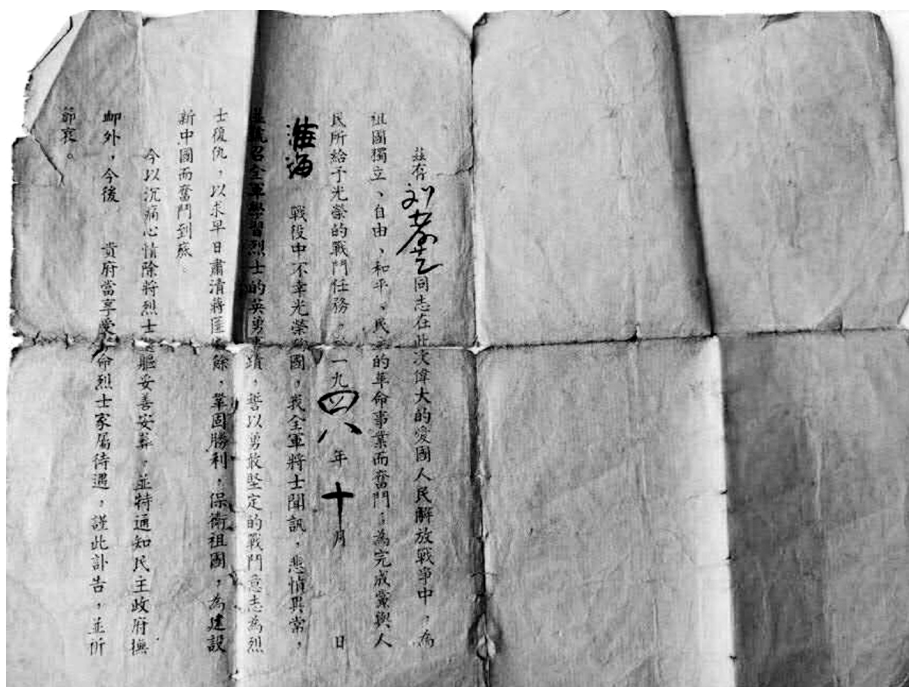 茲有刘 同志在此次偉大的愛國人民解放戰爭中，為
祖國獨立、自由、和平、民主的革命事業而奮鬥；為完成黨與人
民所給予光榮的戰鬥任務，於一九四八年十月 日
淮海 戰役中不幸光榮殉國，我全軍將士聞訊，悲憤異常，
並號召全軍學習烈士的英勇事蹟，誓以勇敢堅定的戰鬥意志為烈
士復仇，以求早日肅清蔣匪殘餘，鞏固勝利，保衛祖國，為建設
新中國而奮鬥到底。
今以沉痛心情除將烈士遺軀妥善安葬，並特通知民主政府撫
卹外，今後 貴府當享受革命烈士家屬待遇，謹此訃告，並祈
節哀。